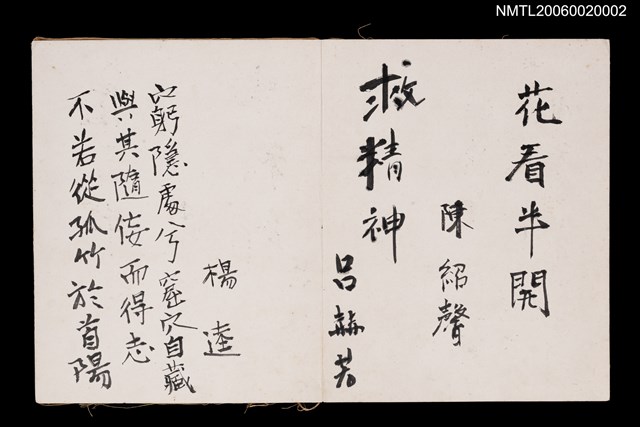 NMTL20060020002
花看半開
陳紹馨
救精神
呂赫若
楊逵
窮隱處兮窟穴自藏
與其隨佞而得志
不若從孤竹於首陽